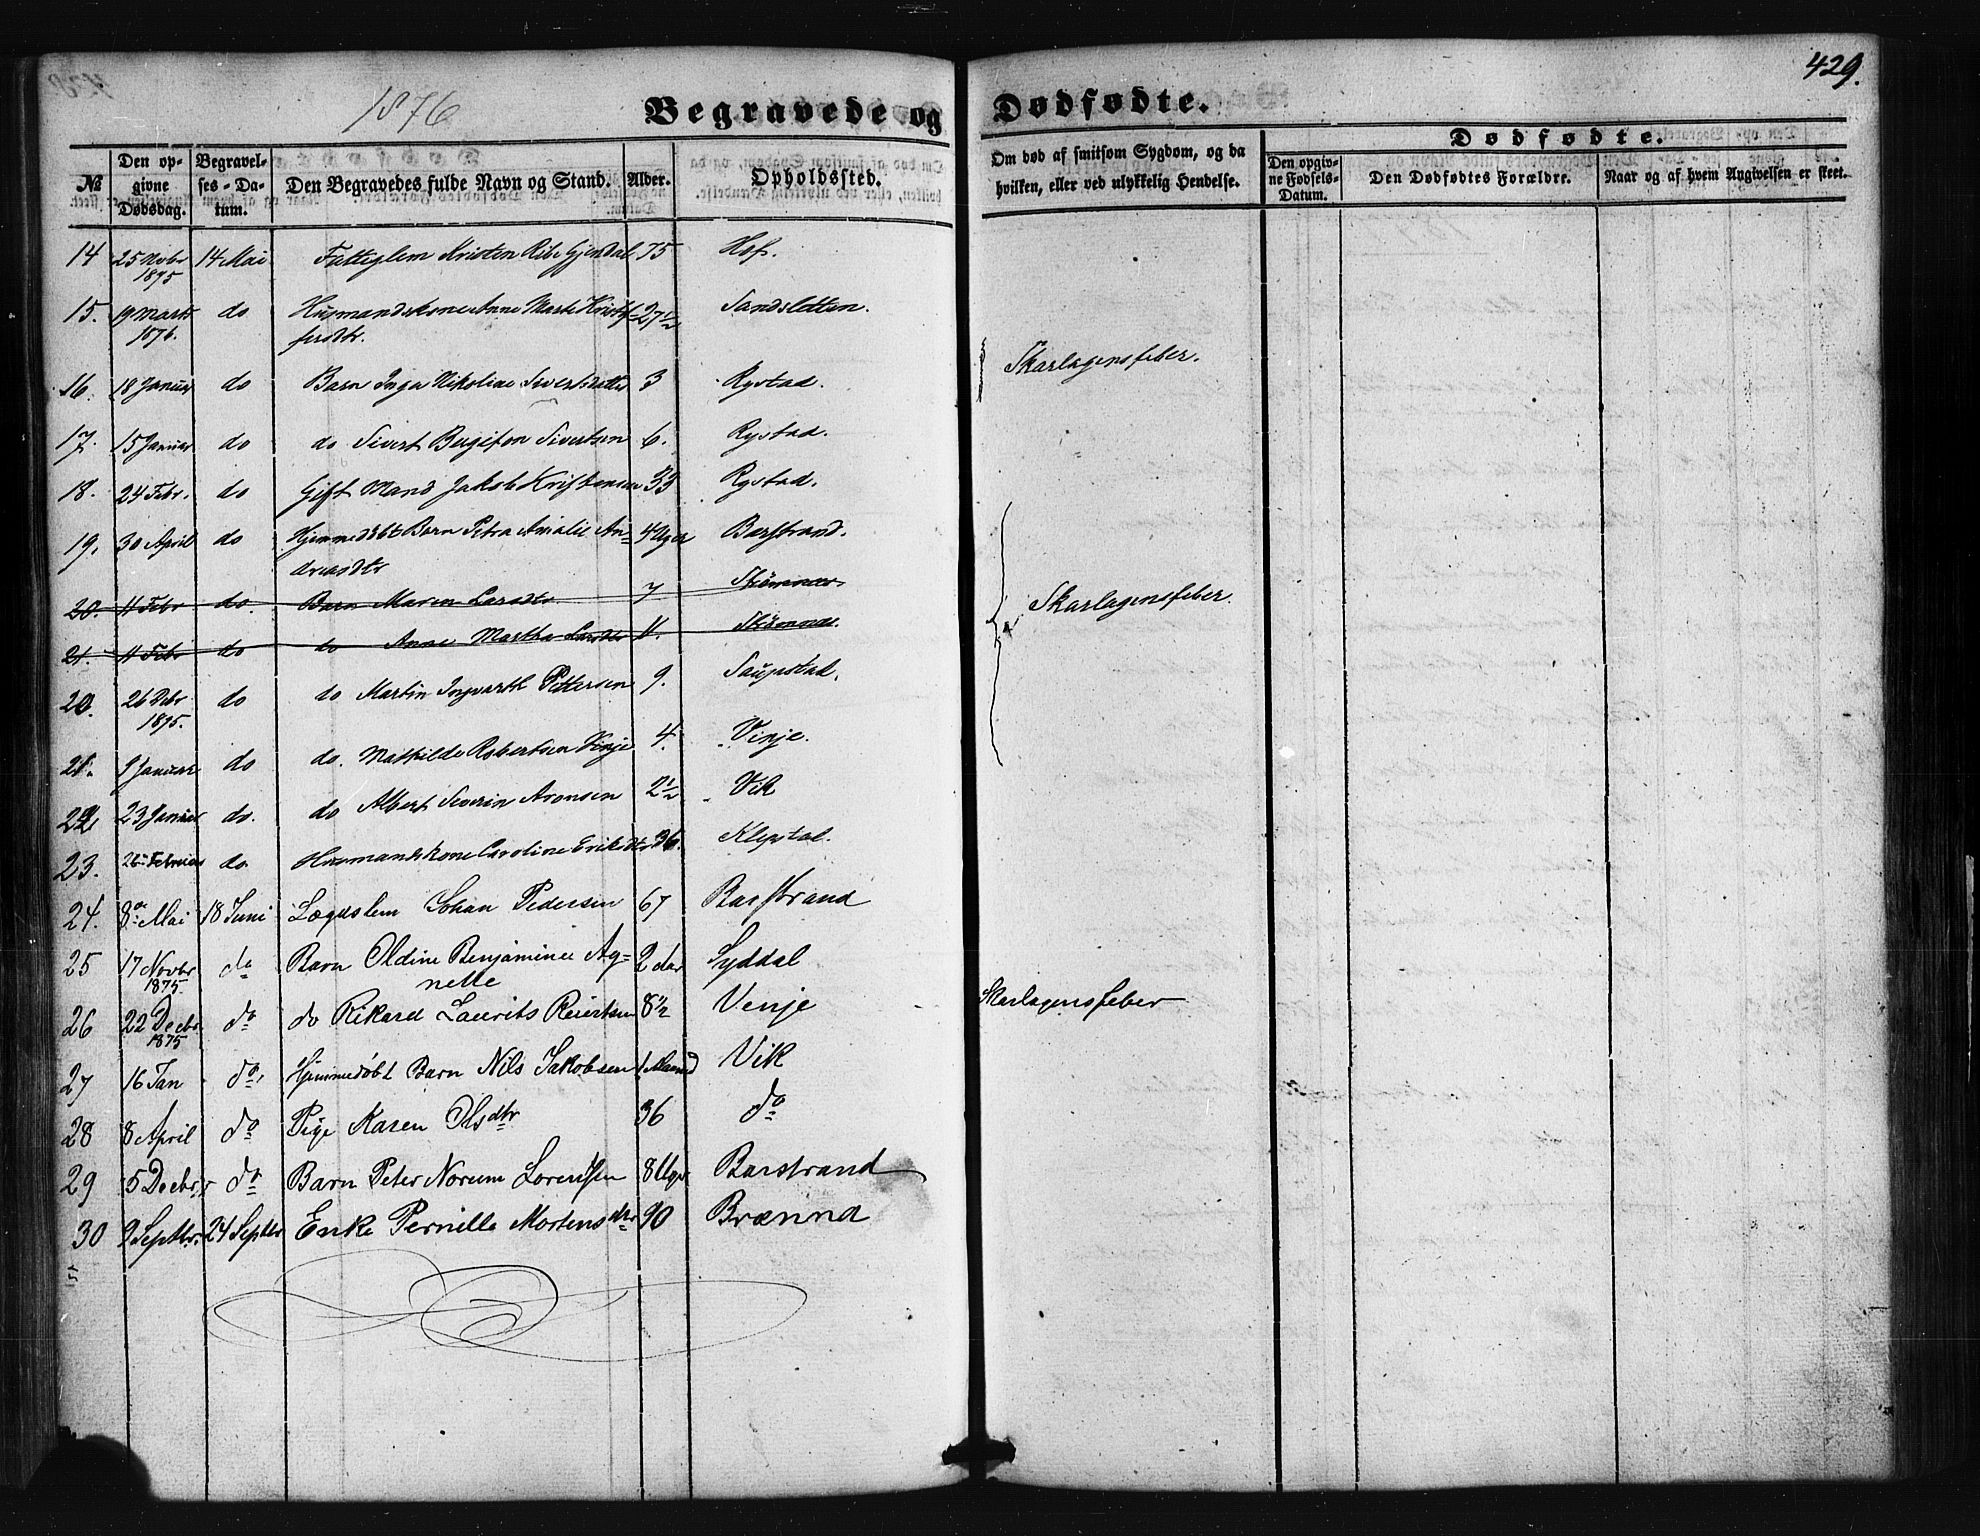 429.
1876
Begravede og Dødfødte.
№ Den opgivne Dødsdag. Begravelses-Datum. Den Begravedes fulde Navn og Stand. Alder. Opholdssted. Om død af smitsom Sygdom, og da hvilken, eller ved ulykkelig Hendelse. Dødfødte. Den opgivne Fødsels-Datum. Den Dødfødtes Forældre. Naar og af hvem Angivelsen er skeet.
14 25 Novbr 1875 14 Mai Fattiglem Kristen Ribe Gjendal 75 Hof.
15. 19 Marts 1876. do Husmandskone Anne Marte Kristofersdtr. 27½ Sandsletten.
16. 18 Januar do Barn Inga Nikoline Sivertsdatter 3 Rystad. Skarlagensfeber.
17. 15 Januar do do Sivert Sivertsen 6. Rystad.
18. 24 Febr. do Gift Mand Jakob Kristensen 33 Rystad.
19. 30 April do Hjemmedøbt Barn Petra Amalie Andreasdtr 4 Uger Barstrand.
20. 11 Febr do. Barn Maren Larsdtr. 7
21. 11 Febr do do Anne Martha Larsdtr 11. Skarlagensfeber.
20. 26 Debr 1875. do do Martin Ingvarth Pettersen 9. Saupstad.
21. 9 Januar do do. Mathilde Robertsen Vinje 4. Vinje.
22 23 Januar do. do Albert Severin Aronsen 2½ Vik
23. 26 Februar do. Husmandskone Caroline Eriksdtr 36. Kleptal.
24. 8de Mai 18 Juni Lægdslem Johan Pedersen 67 Barstrand
25 17 Novbr 1875. do Barn Oldine Benjaminea Agnette 2 dar Syddal
26 22 Decbr 1875 do do Rikard Laurits Reiertsen 8½ Venje Skarlagensfeber
27 16 Jan do Hjemmedøbt Barn Nils Jakobsen 1 Maaned Vik
28 8 April do Pige Karen Olsdtr 36 do
29 5 Decbr. do Barn Peter Norum Lorentsen 8 Uger Barstrand
30 9 Septbr. 24 Septbr Enke Pernille Mortensdtr 90 Brænna